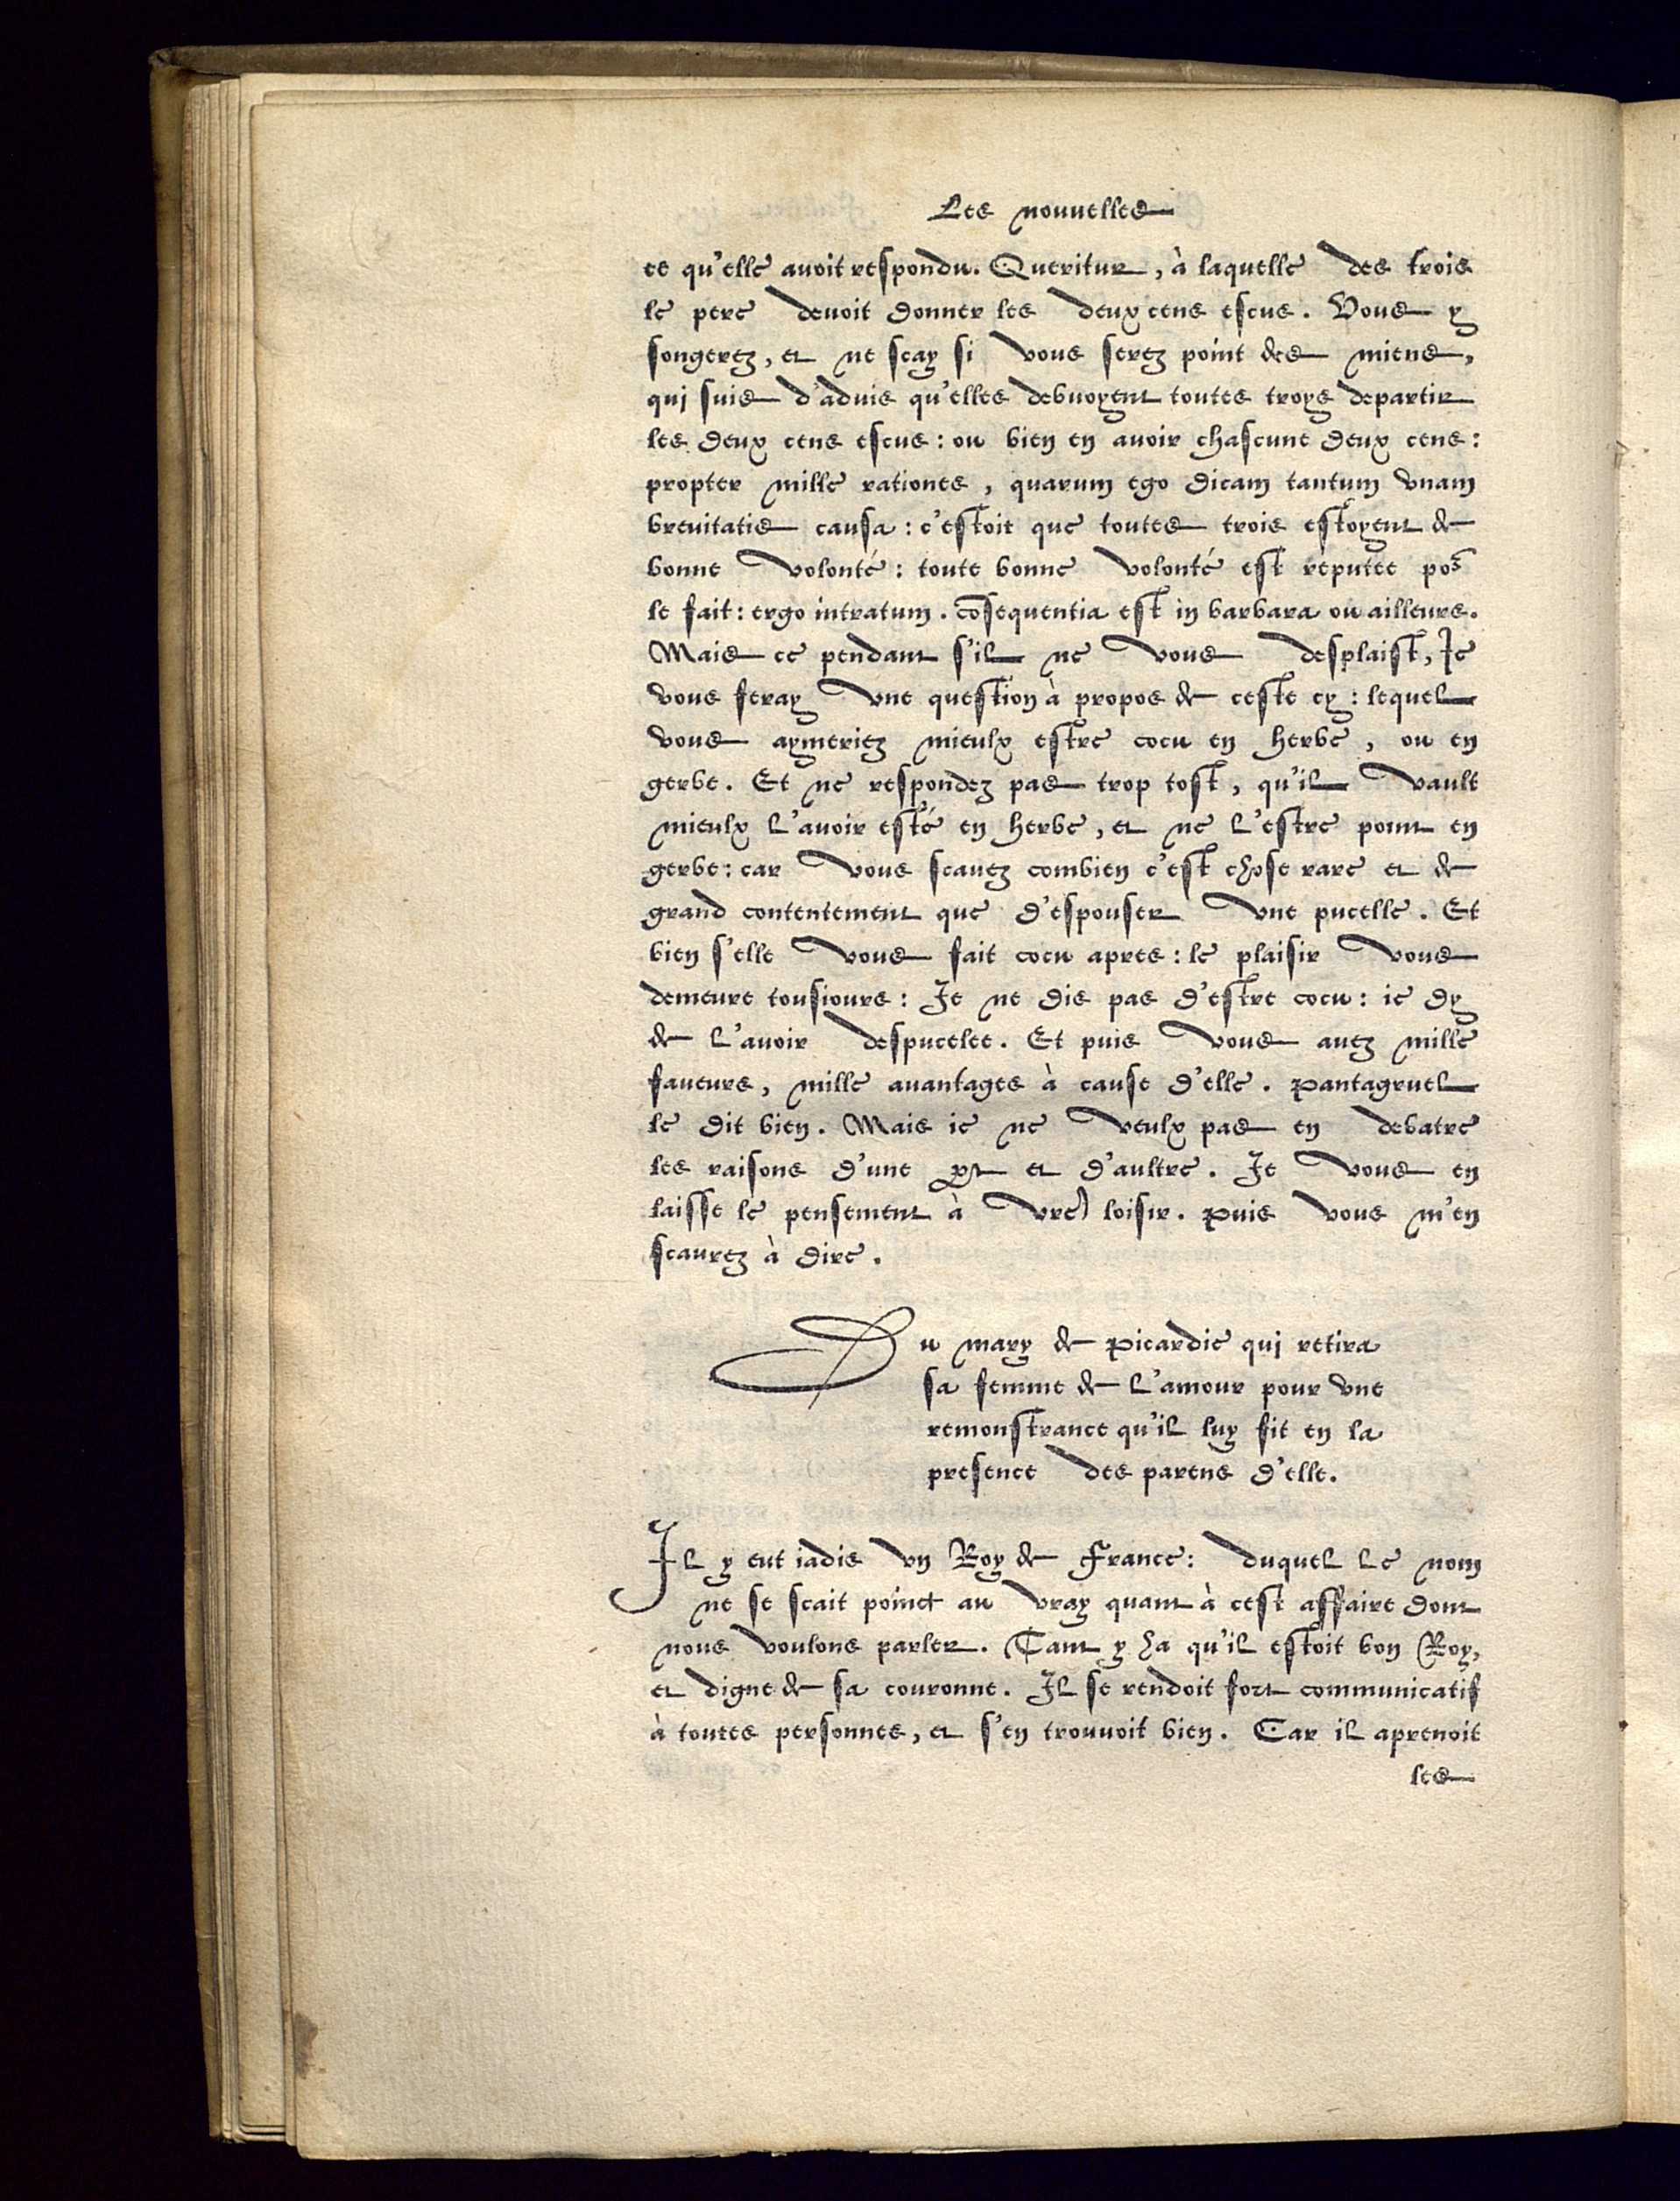 Les nouuelles
ce qu'elle auoit respondu. Queritur, à laquelle des trois
le pere deuoit donner les deux cens escus. Vous y
songerez, et ne scay si vous serez point des miens,
qui suis d'aduis qu'elles debuoyent toutes troys departir
les deux cens escus: ou bien en auoir chascune deux cens:
propter mille rationes, quarum ego dicam tantum vnam
breuitatis causa: c'estoit que toutes trois estoyent de
bonne volonté: toute bonne volonté est reputée por
le fait: ergo intratum. cõsequentia est in barbara ou ailleurs.
Mais ce pendant s'il ne vous desplaist, Ie
vous feray vne question à propos de ceste cy: lequel
vous aymeriez mieulx estre cocu en herbe, ou en
gerbe. Et ne respondez pas trop tost, qu'il vault
mieulx l'auoir esté en herbe, et ne l'estre point en
gerbe: car vous scauez combien c'est chose rare et de
grand contentement que d'espouser vne pucelle. Et
bien s'elle vous fait cocu apres: le plaisir vous
demeure tousiours: Ie ne dis pas d'estre cocu: ie dy
de l'auoir despucelee. Et puis vous auez mille
faueurs, mille auantages à cause d'elle. Pantagruel
le dit bien. Mais ie ne veulx pas en debatre
les raisons d'une part et d'aultre. Ie vous en
laisse le pensement à vre loisir. Puis vous m'en
scaurez à dire.
Du mary de Picardie qui retira
sa femme de l'amour pour vne
remonstrance qu'il luy fit en la
presence des parens d'elle.
Il y eut iadis vn Roy de France: duquel le nom
ne se scait poinct au vray quant à cest affaire dont
nous voulons parler. Tant y ha qu'il estoit bon Roy,
et digne de sa couronne. Il se rendoit fort communicatif
à toutes personnes, et s'en trouuoit bien. Car il aprenoit
les